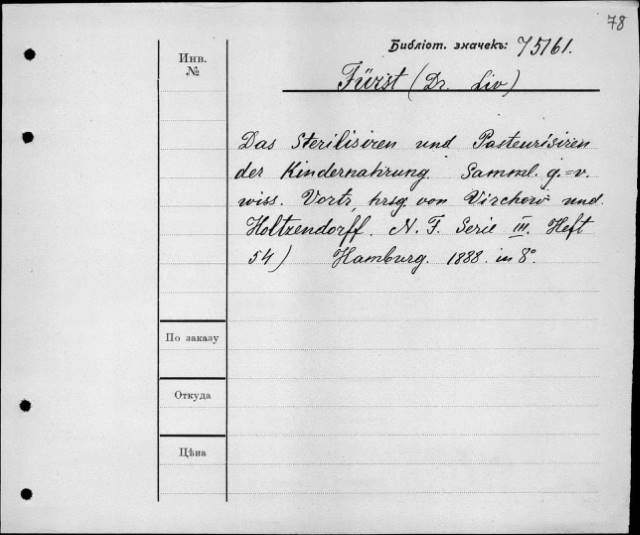 78
Библіот. значекъ: 75161.
Инв.
№
Fürst (Dr. Liv)
Das Sterilisiren und Pasteurisiren
der Kindernahrung. Samml. g.=v.
wiss. Vortr, hrsg. von Virchow und
Holtzendorff. N. F. Serie III. Heft
54) Hamburg. 1888. in 8°.
По заказу
Откуда
Цѣна